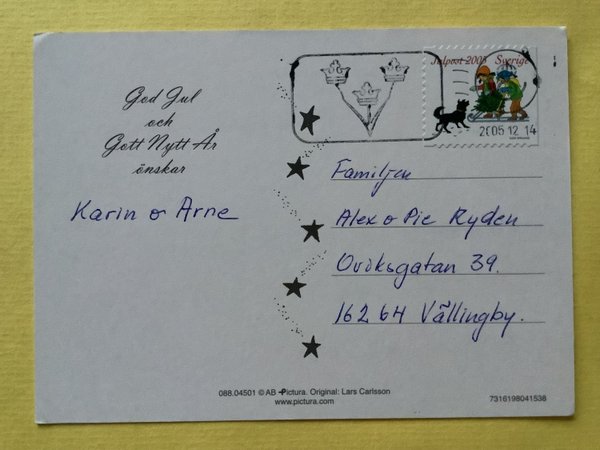 Julpost 2005 Sverige
2005 12 14
God Jul
och
Gott Nytt År
önskar
Karin o Arne
Familjen
Alex o Pie Ryden
Oviksgatan 39.
162 64 Vällingby.
088.04501 © AB Pictura. Original: Lars Carlsson
www.pictura.com
7316198041538